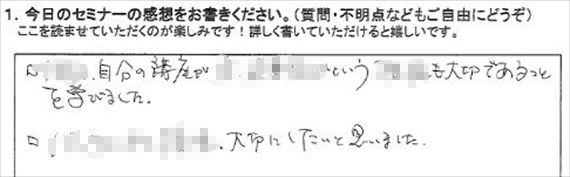 1. 今日のセミナーの感想をお書きください。(質問・不明点などもご自由にどうぞ)
ここを読ませていただくのが楽しみです！詳しく書いていただけると嬉しいです。
自分の講座が という も大切であるっと
を学びました。
大切にしたいと思いました.